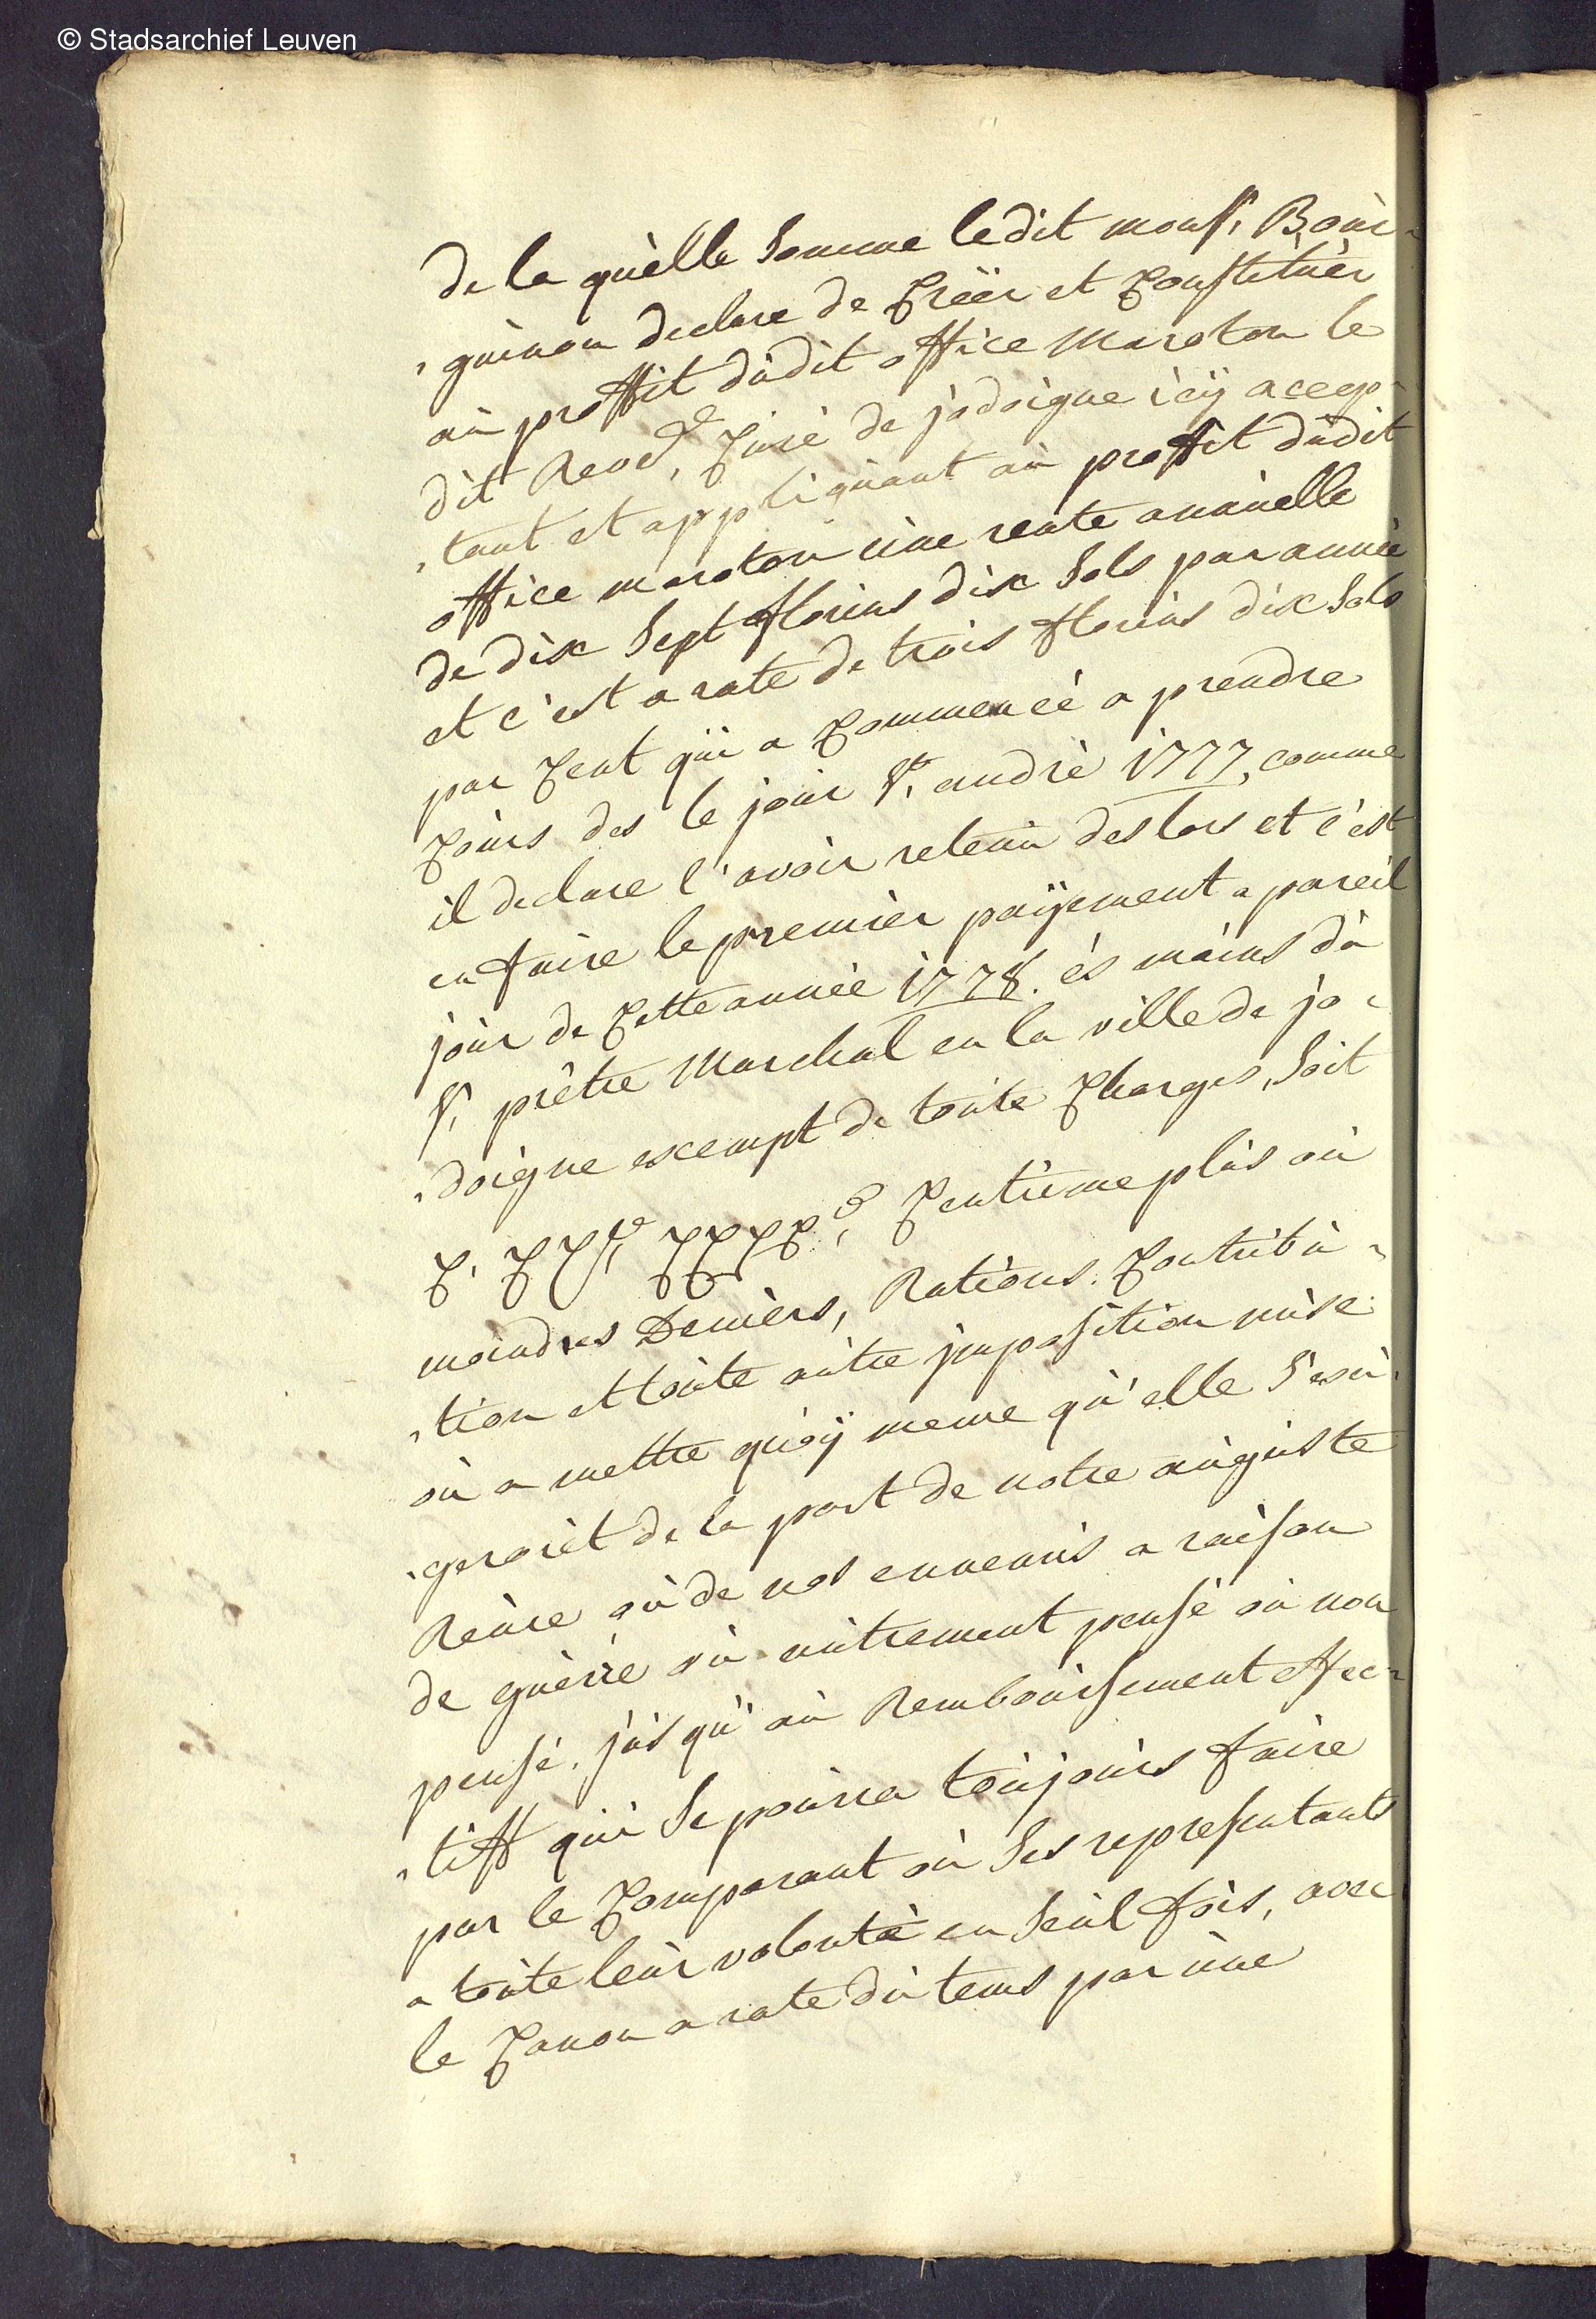 © Stadsarchief Leuven
de la quelle Somme le dit monsr. Bour-
guinon declare de Créer et Constituer
au proffit dudit office Maroton le
dit Revd. Curé de jodoigne icÿ accep-
tant et appliquant au proffit dudit
office maroton une rente annuelle
de dix Sept fflorins dix Sols par année
et c'est a rate de trois fflorins dix Sols
par Cent qui a Commencé a prendre
Cours des le jour St. andré 1777, comme
il declare l'avoir retenu des lors et c'est
en faire le premier paÿement a pareil
jour de Cette année 1778. és mains du
Sr. prêtre Marchal en la ville de jo-
doigne exempt de toute Charges, Soit
X. XXe. XXXXe. Centieme plus ou
moindres Deniers, Rations. Contribu-
tion et toute autre jmposition mise
ou a mettre quoÿ meme qu'elle S'exi-
geroiet de la part de notre auguste
Reine ou de nos ennemis a raison
de guerre ou autrement pensé ou non
pensé. jusqu'au Remboursement effec-
tiff qui Se pourra toujours faire
par le Comparant ou Ses representants
a toute leur volonté en Seul fois, avec
le Canon a rate du tems par une